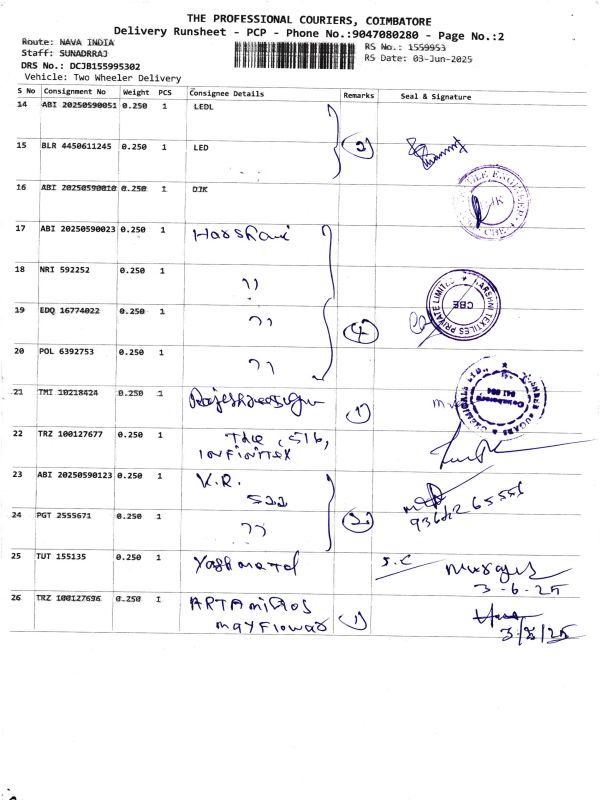 THE PROFESSIONAL COURIERS, COIMBATORE
Delivery Runsheet - PCP - Phone No.:9047080280 - Page No.:2
Route: NAVA INDIA
Staff: SUNADRRAJ
DRS No.: DCJB155995302
Vehicle: Two Wheeler Delivery
RS No.: 1559953
RS Date: 03-Jun-2025
S No Consignment No Weight PCS Consignee Details Remarks Seal & Signature
14 ABI 20250590051 0.250 1 LEDL
15 BLR 4450611245 0.250 1 LED (2)
16 ABI 20250590010 0.250 1 DJK
17 ABI 20250590023 0.250 1 Harshani
18 NRI 592252 0.250 1 ''
19 EDQ 16774022 0.250 1 '' (4)
HARSHNI TEXTILES PRIVATE LIMITED CBE
20 POL 6392753 0.250 1 ''
21 TMI 10218424 0.250 1 (1)
Coimbatore 641 004
22 TRZ 100127677 0.250 1 The, 516,
infinitex
23 ABI 20250590123 0.250 1 K.R.
522
24 PGT 2555671 0.250 1 '' (2)
25 TUT 155135 0.250 1 S.C
3-6-25
26 TRZ 100127696 0.250 1 ARTAmiROS
mayflowar (1)